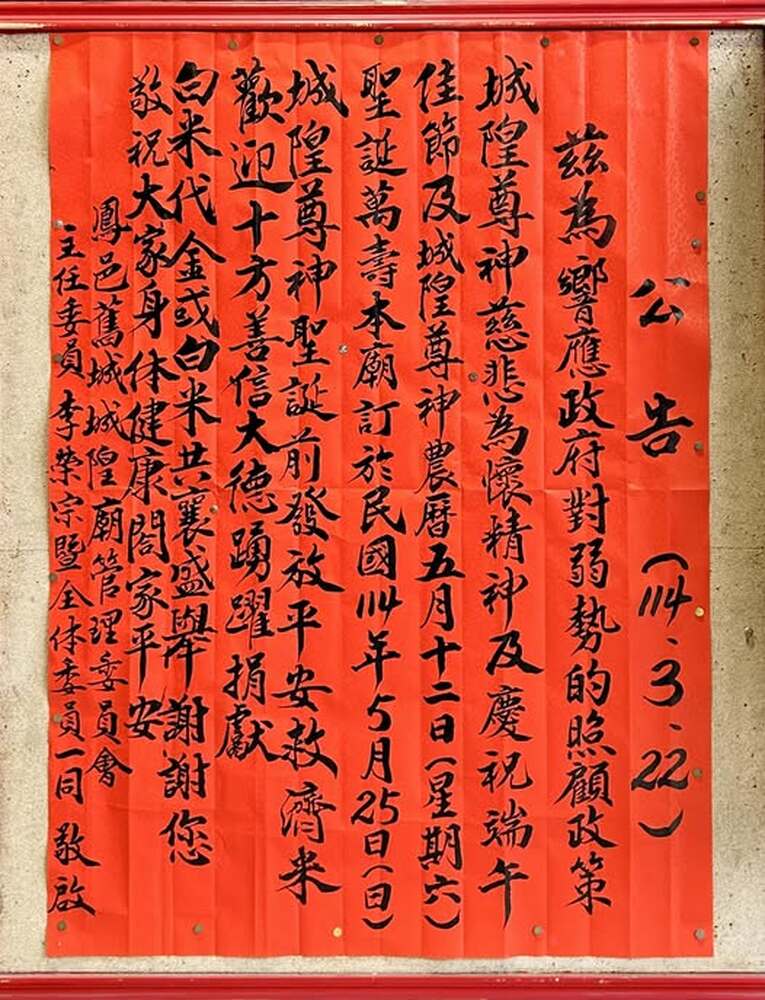 公告（114、3、22）
兹為響應政府對弱勢的照顧政策
城隍尊神慈悲為懷精神及慶祝端午
佳節及城隍尊神農曆五月十二日（星期六）
聖誕萬壽本廟訂於民國114年5月25日（日）
城隍尊神聖誕前發放平安救濟米
歡迎十方善信大德踴躍捐獻
白米代金或白米共襄盛舉謝謝您
敬祝大家身体健康閤家平安
鳳邑舊城城隍廟管理委員會
主任委員李榮宗暨全体委員一同敬啟